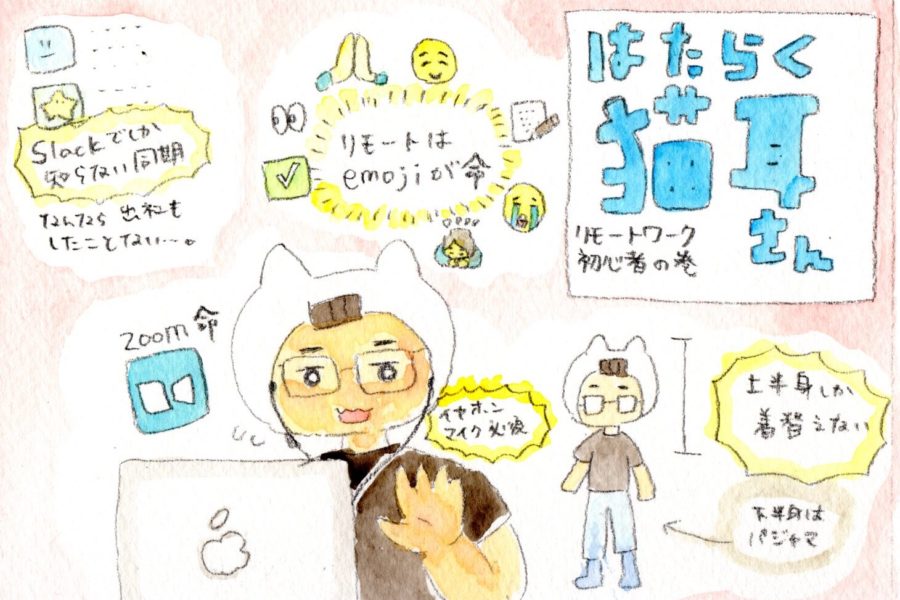 はたらく
猫耳
さん
リモートワーク
初心者の巻
リモートは
emojiが命
Slackでしか
知らない同期
なんなら出社も
したことない…。
zoom命
イヤホン
マイク必須
上半身しか
着替えない
下半身は
パジャマ